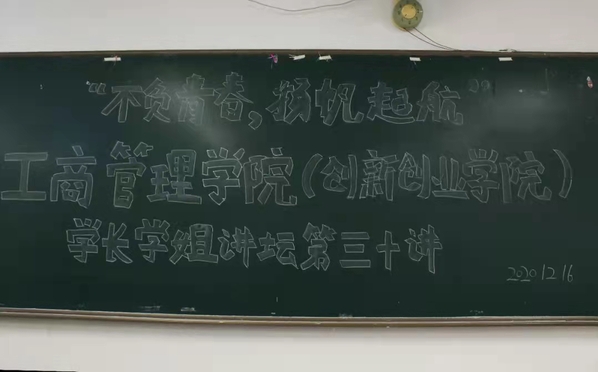 “不负青春，扬帆起航”
工商管理学院（创新创业学院）
学长学姐讲坛第三十讲
2020 12 16